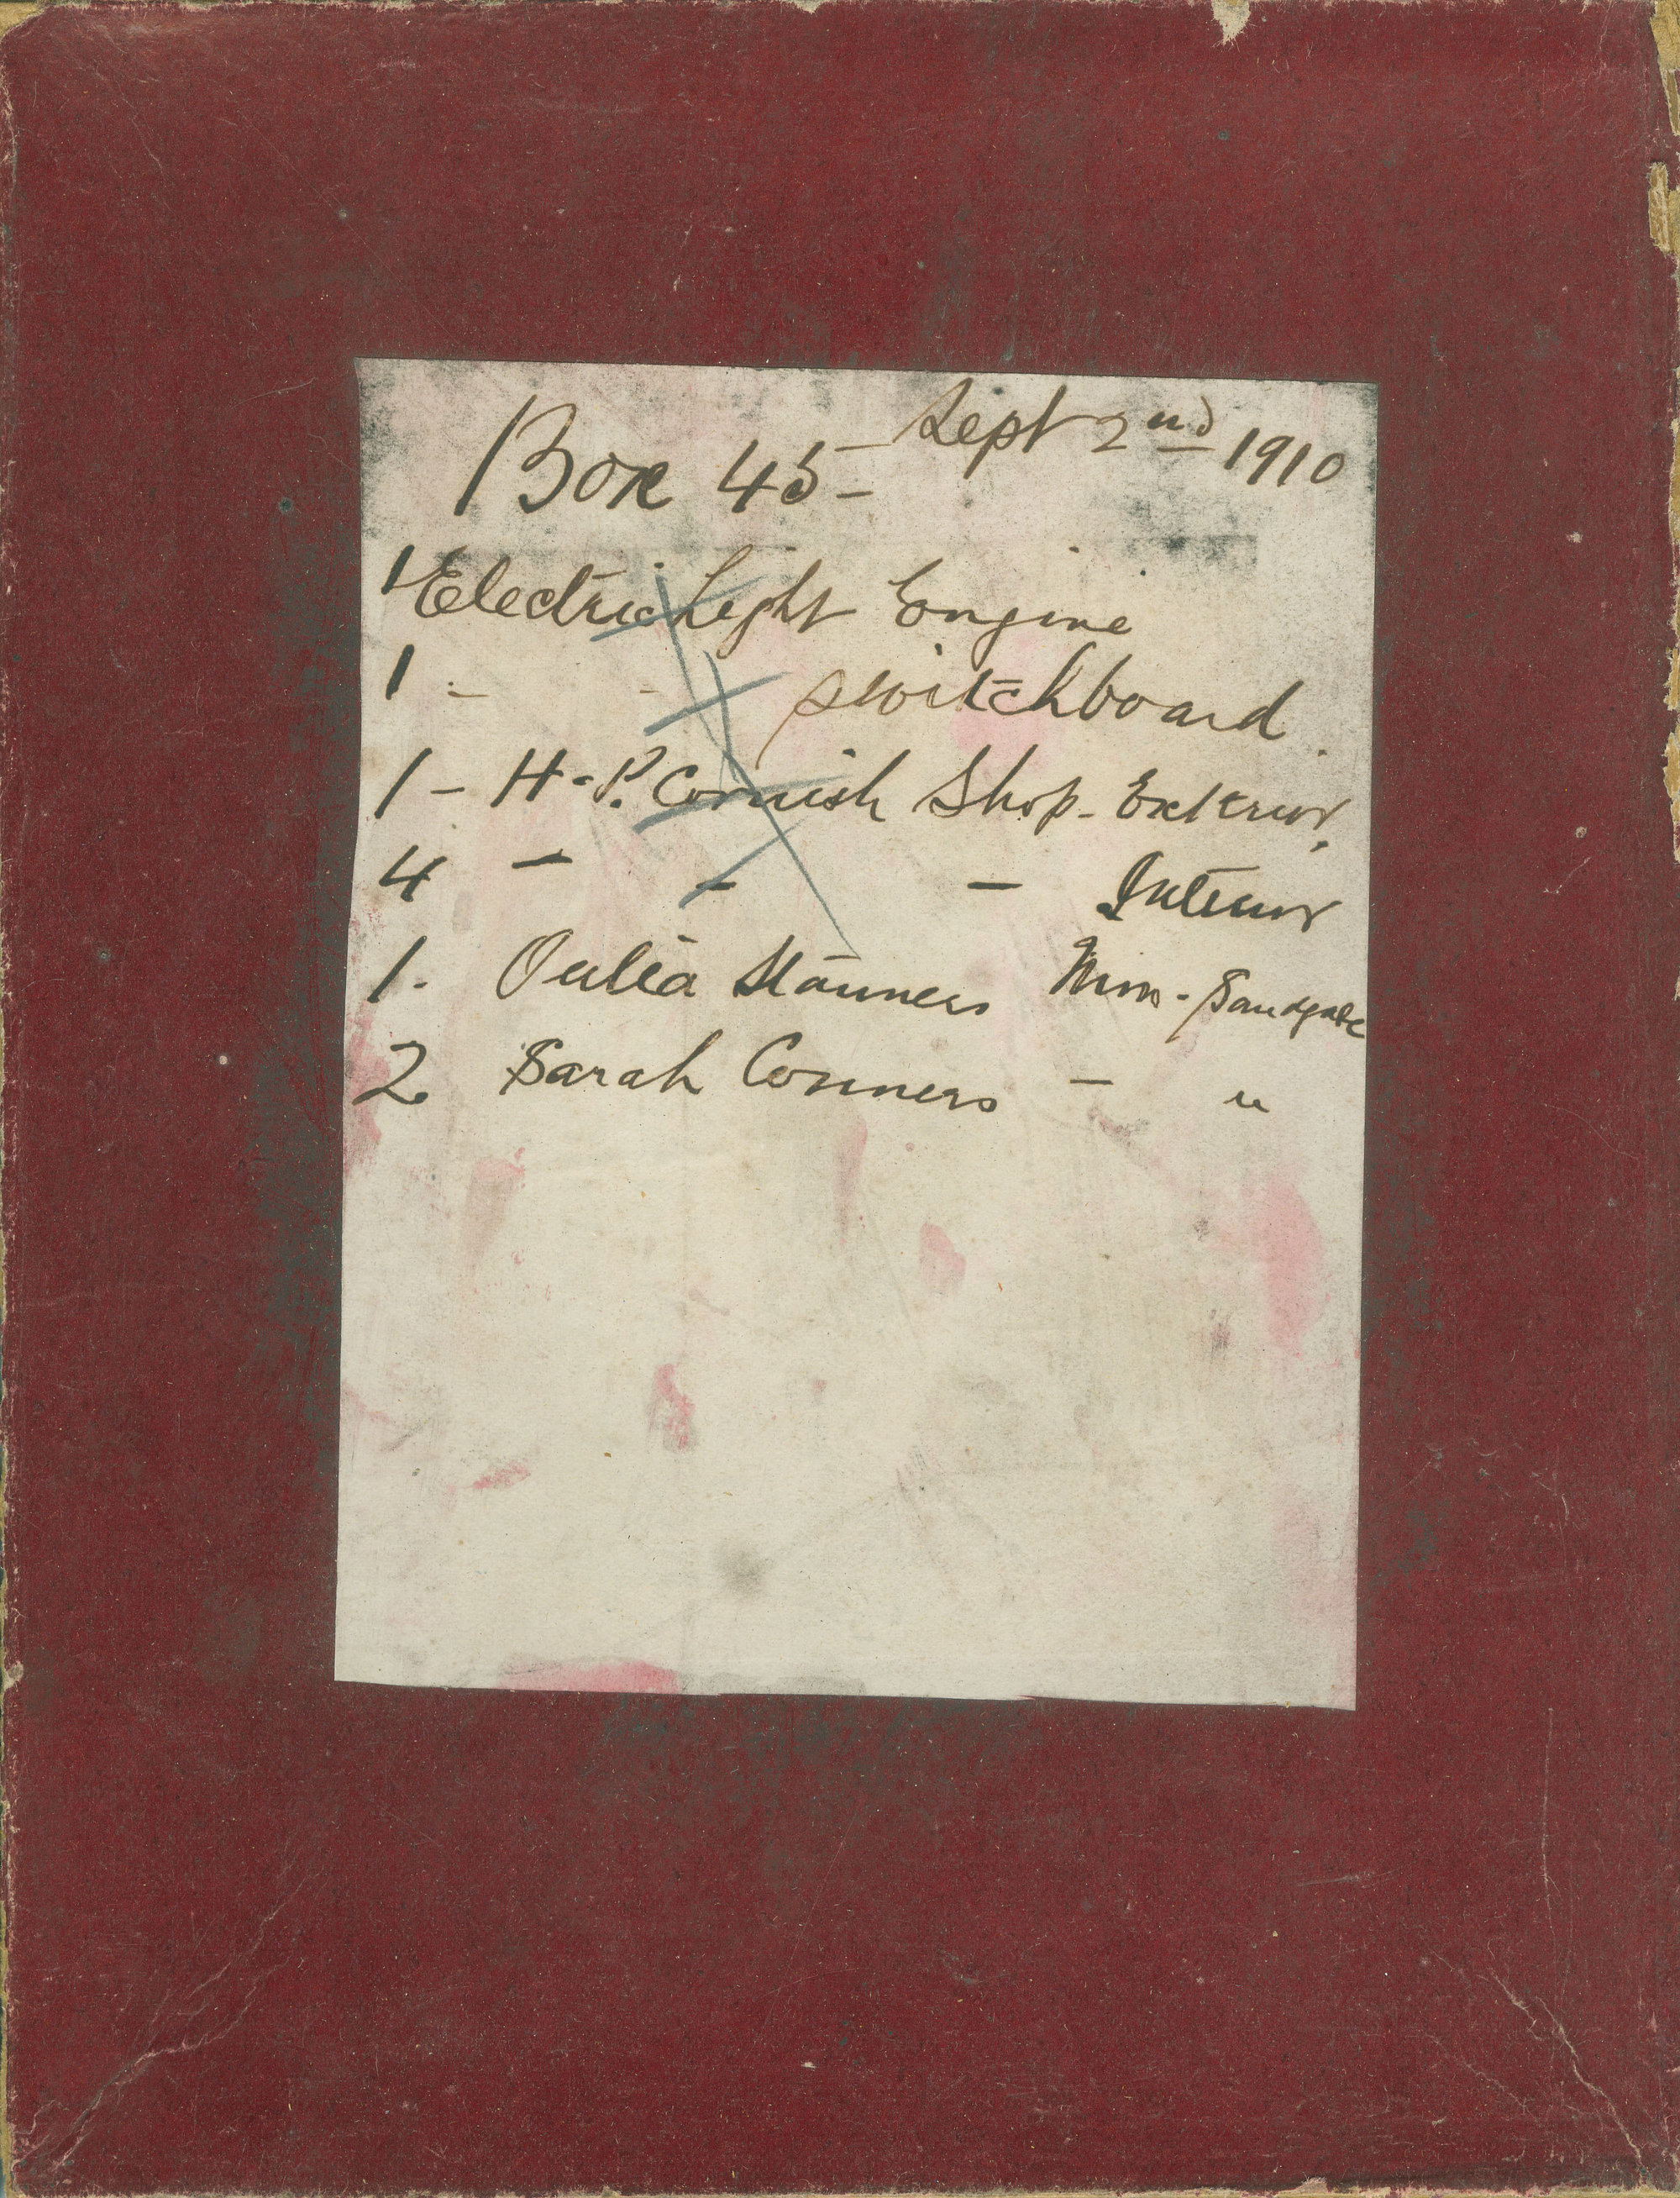 Box 45 - Sept 2nd 1910
1 Electric Light Engine
1 - - switchboard.
1 - H. P. Cornish Shop - Exterior
4 - - - Interior
1. Manners - Sandgate
2 Sarah Conners - "